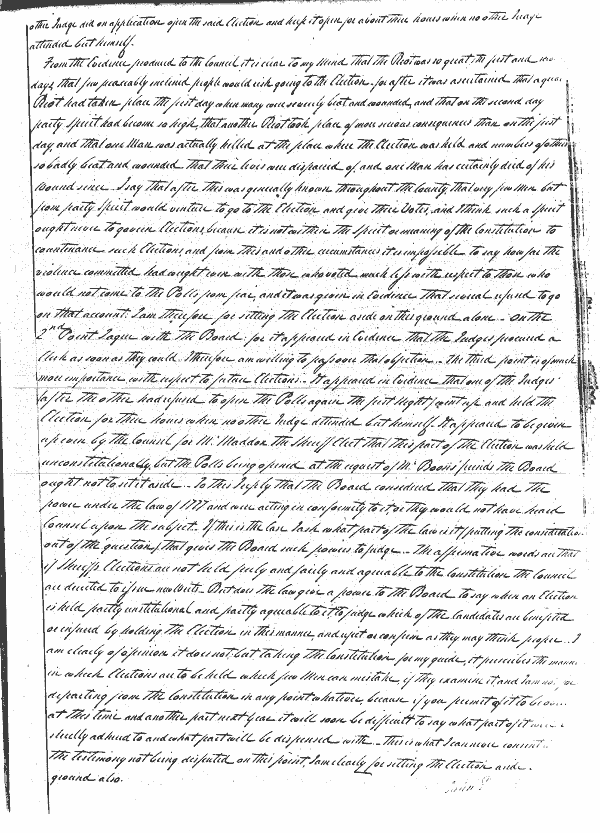 other Judge did on application open the said Election and keep it open for about three hours when no other Judge
attended but himself.
From the Evidence produced to the Council it is clear to my Mind that the Riot was so great the first and
days, that few peaceably inclined people would risk going to the Election, for after it was ascertained that a
Riot had taken place the first day when many were severely beat and wounded, and that on the second day
party Spirit had become so high, that another Riot took place of more serious consequences than on the first
day, and that one Man was actually killed at the place where the Election was held and numbers of others
so badly beat and wounded that their lives were dispaired of, and one Man has certainly died of his
Wound since. I say that after this was generally known throughout the County, that very few Men but
from party Spirit would venture to go to the Election and give their Votes, and I think such a Spirit
ought never to govern Elections, because it is not within the Spirit or meaning of the Constitution to
countenance such Elections, and from this and other circumstances it is impossible to say how far the
violence committed had weight even with those who voted much less with respect to those who
would not come to the Polls from fear, and it was given in Evidence that several refused to go
on that account. I am therefore for setting the Election aside on this ground alone - On the
2nd Point I agree with the Board, for it appeared in Evidence that the Judges procured a
Clerk as soon as they could. Therefore am willing to pass over that objection - the third point is of much
more importance with respect to future Elections - It appeared in Evidence that one of the Judges
(after the other had refused to open the Polls again the first Night) went up and held the
Election for three hours when no other Judge attended but himself. It appeared to be given
up even by the Counsel for Mr. Maddox the Sheriff Elect that this part of the Election was held
unconstitutionally, but the Polls being opened at the request of Mr. Boon's friends the Board
ought not to set it aside - To this I reply that the Board considered that they had the
power under the law of 1777 and were acting in conformity to it or they would not have heard
Counsel upon the subject. If this is the case I ask what part of the law is it (putting the constitution
out of the question) that gives the Board such powers to judge - the affirmative words are that
if Sheriffs Elections are not held freely and fairly and agreeable to the Constitution the Council
are directed to issue new Writs - But does the law give a power to the Board to say when an Election
is held partly unstitutional and partly agreeable to it to judge which of the candidates are benefited
or injured by holding the Election in this manner, and reject or confirm as they may think proper - I
am clearly of opinion it does not, but taking the Constitution for my guide, it prescribes the manner
in which Elections are to be held which few Men can mistake, if they examine it, and I am
departing from the Constitution in any point whatever, because if you permit of it to be
at this time and another part next Year it will soon be difficult to say what part of it
strictly adhered to and what part will be dispensed with - this is what I can never consent
the testimony not being disputed on this point, I am clearly for setting the Election aside
ground also.